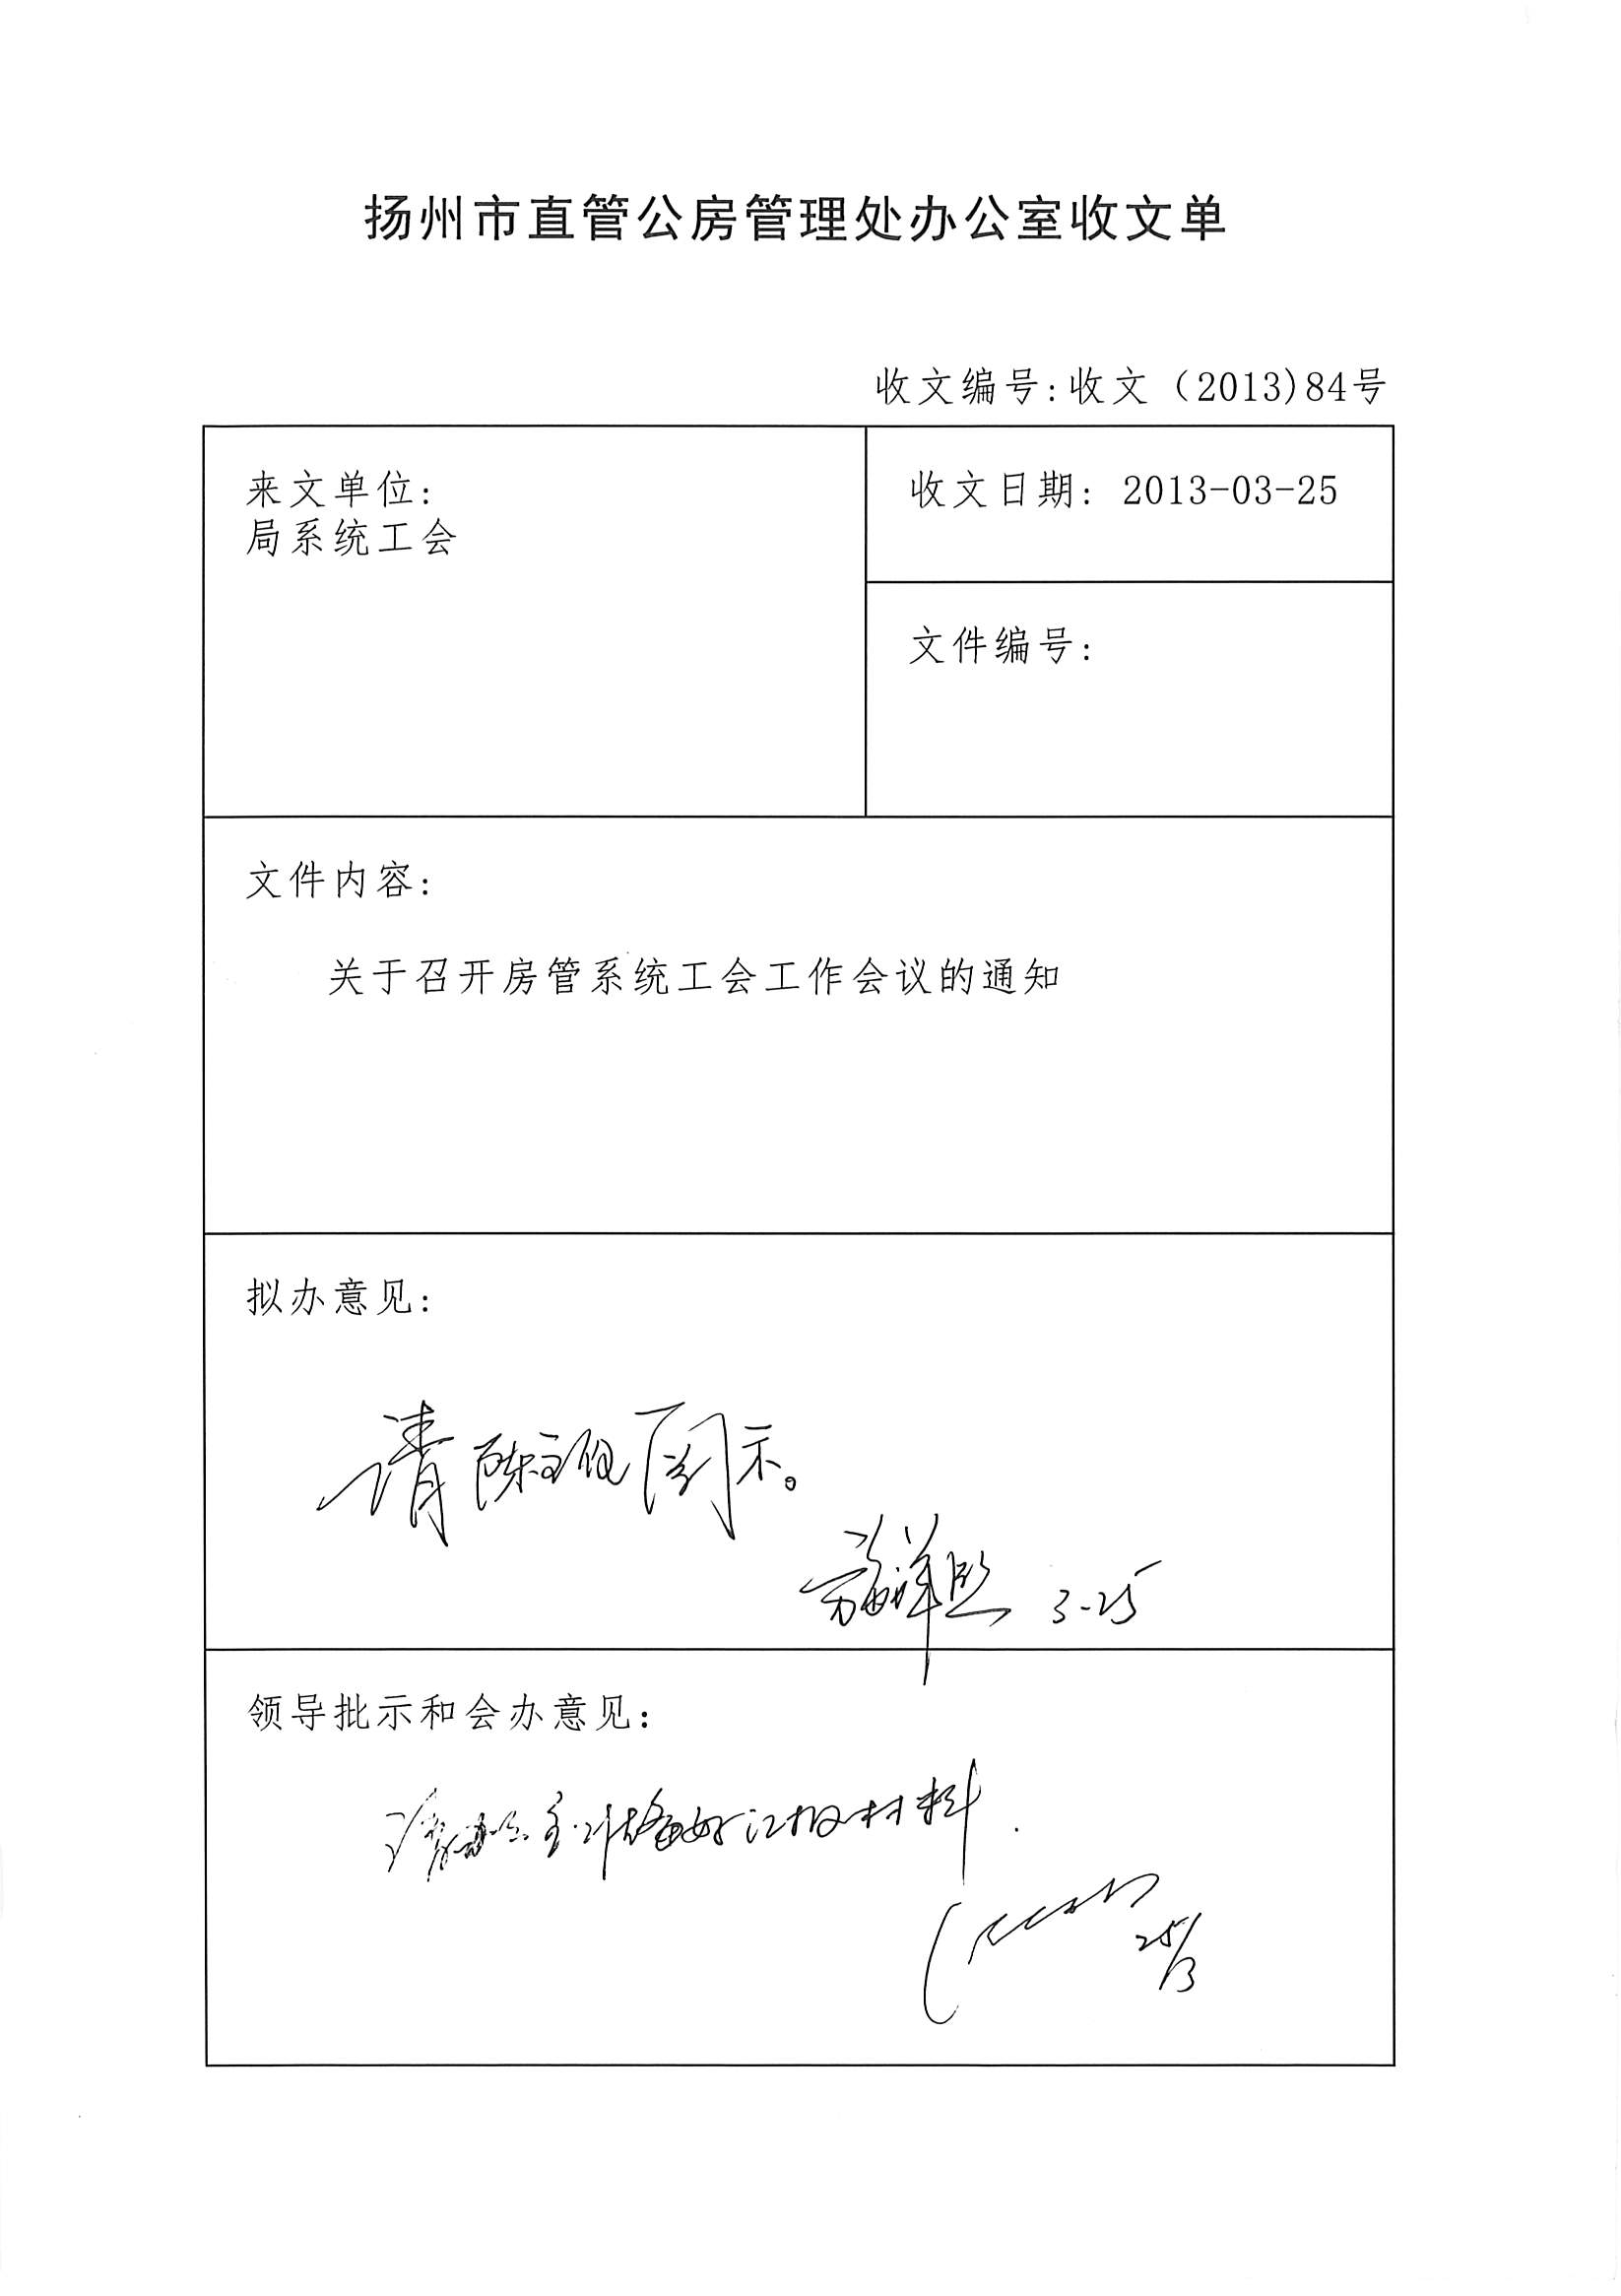 扬州市直管公房管理处办公室收文单
收文编号:收文（2013)84号
来文单位:
局系统工会
收文日期: 2013-03-25
文件编号:
文件内容:
关于召开房管系统工会工作会议的通知
拟办意见:
请陈主任阅示。
3-25
领导批示和会办意见:
准备好汇报材料.
25/3